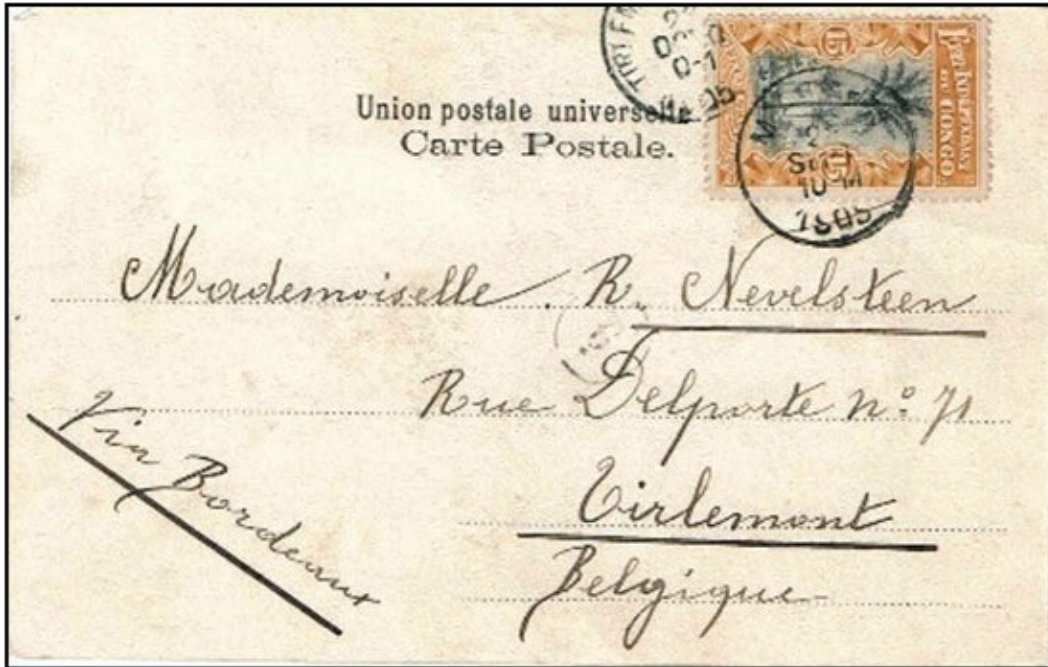 Union postale universelle
Carte Postale.
ETAT INDÉPENDANT
DU CONGO
15
15
1905
Mademoiselle R. Nevelsteen
Rue Delporte n° 71
Tirlemont
Belgique
Via Bordeaux